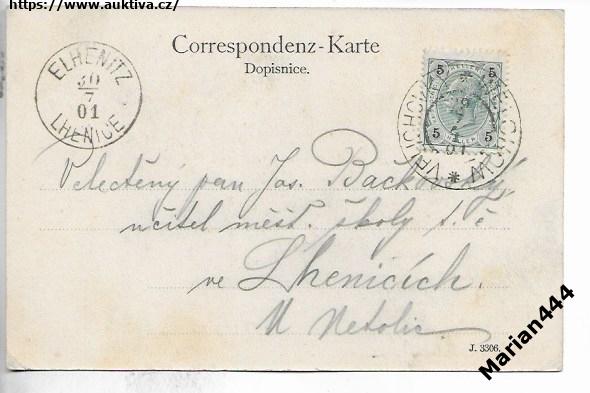 https://www.auktiva.cz/
Correspondenz-Karte
Dopisnice.
ELHENITZ
30
7
01
LHENICE
5 5
5 5
Velectěný pan Jos. Bačkovský,
učitel měšť. školy t. č
ve Lhenicích.
U Netolic
J. 3306.
Marian444